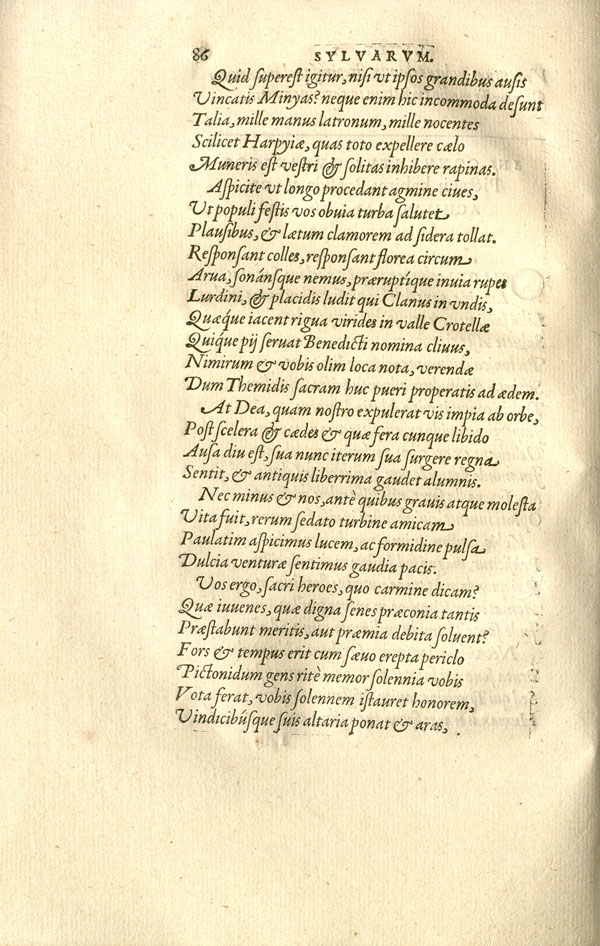 86 SYLVARVM.
Quid superest igitur, nisi vt ipsos grandibus ausis
Vincatis Minyas? neque enim hic incommoda desunt
Talia, mille manus latronum, mille nocentes
Scilicet Harpyiæ, quas toto expellere cælo
Muneris est vestri & solitas inhibere rapinas.
Aspicite vt longo procedant agmine ciues,
Vt populi festis vos obuia turba salutet
Plausibus, & lætum clamorem ad sidera tollat.
Responsant colles, responsant florea circum
Arua, sonánsque nemus, præruptíque inuia rupes
Lurdini, & placidis ludit qui Clanus in vndis,
Quæque iacent rigua virides in valle Crotellæ
Quique pij seruat Benedicti nomina cliuus,
Nimirum & vobis olim loca nota, verendæ
Dum Themidis sacram huc pueri properatis ad ædem.
At Dea, quam nostro expulerat vis impia ab orbe,
Post scelera & cædes & quæ fera cunque libido
Ausa diu est, sua nunc iterum sua surgere regna
Sentit, & antiquis liberrima gaudet alumnis.
Nec minus & nos, antè quibus grauis atque molesta
Vita fuit, rerum sedato turbine amicam
Paulatim aspicimus lucem, ac formidine pulsa
Dulcia venturæ sentimus gaudia pacis.
Vos ergo, sacri heroes, quo carmine dicam?
Quæ iuuenes, quæ digna senes præconia tantis
Præstabunt meritis, aut præmia debita soluent?
Fors & tempus erit cum sæuo erepta periclo
Pictonidum gens ritè memor solennia vobis
Vota ferat, vobis solennem istauret honorem,
Vindicibúsque suis altaria ponat & aras,